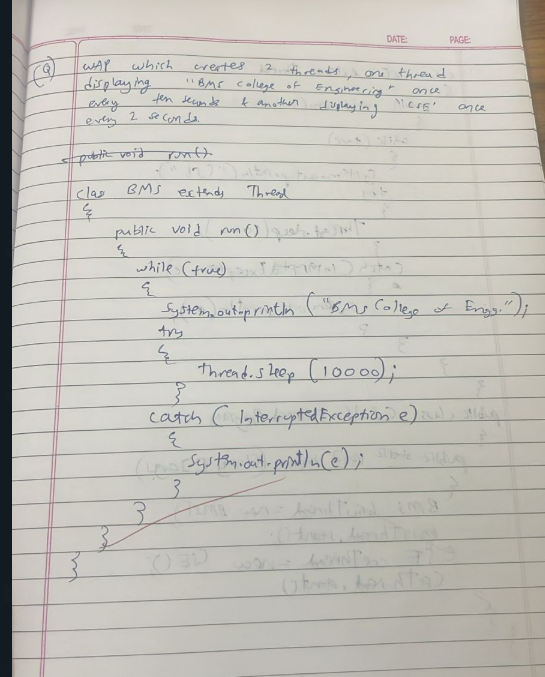 DATE: PAGE:
Q WAP which creates 2 threads, one thread
displaying "BMS College of Engineering" once
every ten seconds & another displaying "CSE" once
every 2 seconds.
public void run()
class BMS extends Thread
{
public void run()
{
while (true)
{
System.out.println ("BMS College of Engg.");
try
{
Thread.sleep (10000);
}
catch (InterruptedException e)
{
System.out.println(e);
}
}
}
}